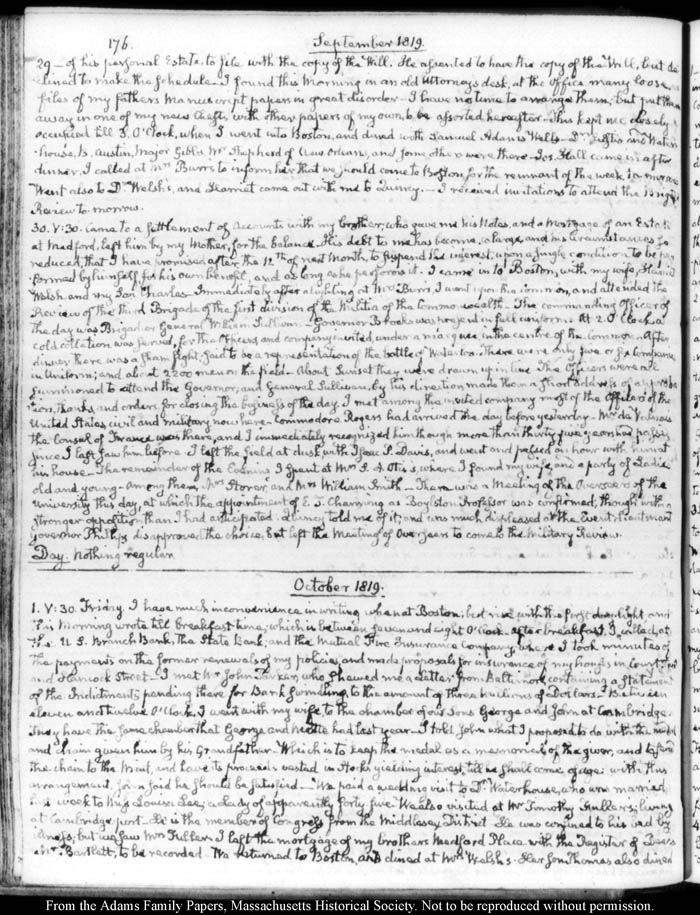 176.
September 1819.
29 — of his personal Estate, to file with the copy of the Will. He assented to have the copy of the Will, but de
clined to make the schedule — I found this Morning in an old Attorney's desk, at the Office many loose
files of my father's Manuscript papers in great disorder — I have no time to arrange them; but put them
away in one of my new Chests, with other papers of my own, to be assorted hereafter — This kept me closely
occupied till 3. O'Clock, when I went into Boston, and dined with Samuel Adams Wells — Dr Eustis and Water-
house, B. Austin, Major Gibbs, Mr Shepherd of New Orleans, and some others were there — Jos. Hall came in after
dinner. I called at Mrs Burr's to inform her that we should come to Boston, for the remnant of the week
Went also to Dr Welsh's, and Harriet came out with me to Quincy. — I received invitations to attend the Brigade
Review to-morrow.
30. V:30. Came to a settlement of Accounts with my brother; who gave me his Notes, and a Mortgage of an Estate
at Medford, left him by my Mother, for the balance. His debt to me has become so large, and his circumstances so
reduced, that I have promised after the 12th of next Month, to suspend the interest, upon a single condition to be per
formed by himself for his own benefit, and as long as he performs it. I came in to Boston, with my wife, Harriet
Welsh and my Son Charles — Immediately after alighting at Mrs Burr's, I went upon the common, and attended the
Review of the third Brigade of the first division of the Militia of the Commonwealth. The commanding Officer of
the day was Brigadier General William Sullivan — Governor Brooks was present in full uniform. At 2. O'Clock a
cold collation was served, for the Officers, and company invited, under a marquee, in the centre of the Common. After
dinner there was a sham fight, said to be a representation of the battle of Waterloo. There were only five or six Companies
in Uniform; and about 2200 men on the field — About Sunset they were drawn up in line The Officers were all
summoned to attend the Governor, and General Sullivan, by his direction made them a short address of approba
tion, thanks, and orders for closing the business of the day. I met among the invited company most of the Officers of the
United States, civil and military now here — Commodore Rogers had arrived the day before yesterday — Mr de Valnais
the Consul of France was there, and I immediately recognized him though more than thirty five years have passed
since I last saw him before I left the field at dusk with Isaac P. Davis, and went and passed an hour with him at
his house. — The remainder of the Evening I spent at Mrs S. A. Otis's, where I found my wife, and a party of Ladies
old and young — Among them Mrs Storer, and Mrs William Smith — There was a Meeting of the Overseers of the
University this day, at which the appointment of E. T. Channing as Boylston Professor was confirmed, though with a
stronger opposition than I had anticipated. Quincy told me of it; and was much displeased at the Event. Lieutenant
Governor Phillips disapproved the choice, but left the Meeting of Overseers to come to the Military Review.
Day. Nothing regular.
October 1819.
1. V:30. Friday. I have much inconvenience in writing when at Boston; but rise with the first daylight and
this Morning wrote till breakfast time; which is between seven and eight O'Clock. After breakfast, I called at
the U.S. Branch Bank, The State Bank, and the Mutual Fire Insurance Company, where I took minutes of
the payments on the former renewals of my policies, and made proposals for insurance of my houses in Court
and Hancock Street — I met Mr John Parker, who shewed me a letter from Baltimore, containing a statement
of the Indictments pending there for Bank swindling, to the amount of three Millions of Dollars — Between
eleven and twelve O'Clock, I went with my wife, to the chamber of our Sons George and John at Cambridge.
They have the same chamber that George had last year — I told John what I proposed to do with the medal
and chain given him by his Grandfather. Which is to keep the medal as a memorial of the giver, and to send
the chain to the Mint, and have its proceeds vested in stocks yielding interest, till he shall come of age; with this
arrangement, John said he should be satisfied — We paid a wedding visit to Dr Waterhouse, who was married
last week to Miss Louisa Lee, a Lady of apparently forty five. We also visited at Mr Timothy Fuller's; living
at Cambridge port — He is the member of Congress from the Middlesex District He was confined to his bed by
illness; but we saw Mrs Fuller. I left the mortgage of my brother's Medford Place with the Register of Deeds
Mr Bartlett, to be recorded — We returned to Boston, and dined at Mrs Welsh's — Her Son Thomas also dined
From the Adams Family Papers, Massachusetts Historical Society. Not to be reproduced without permission.